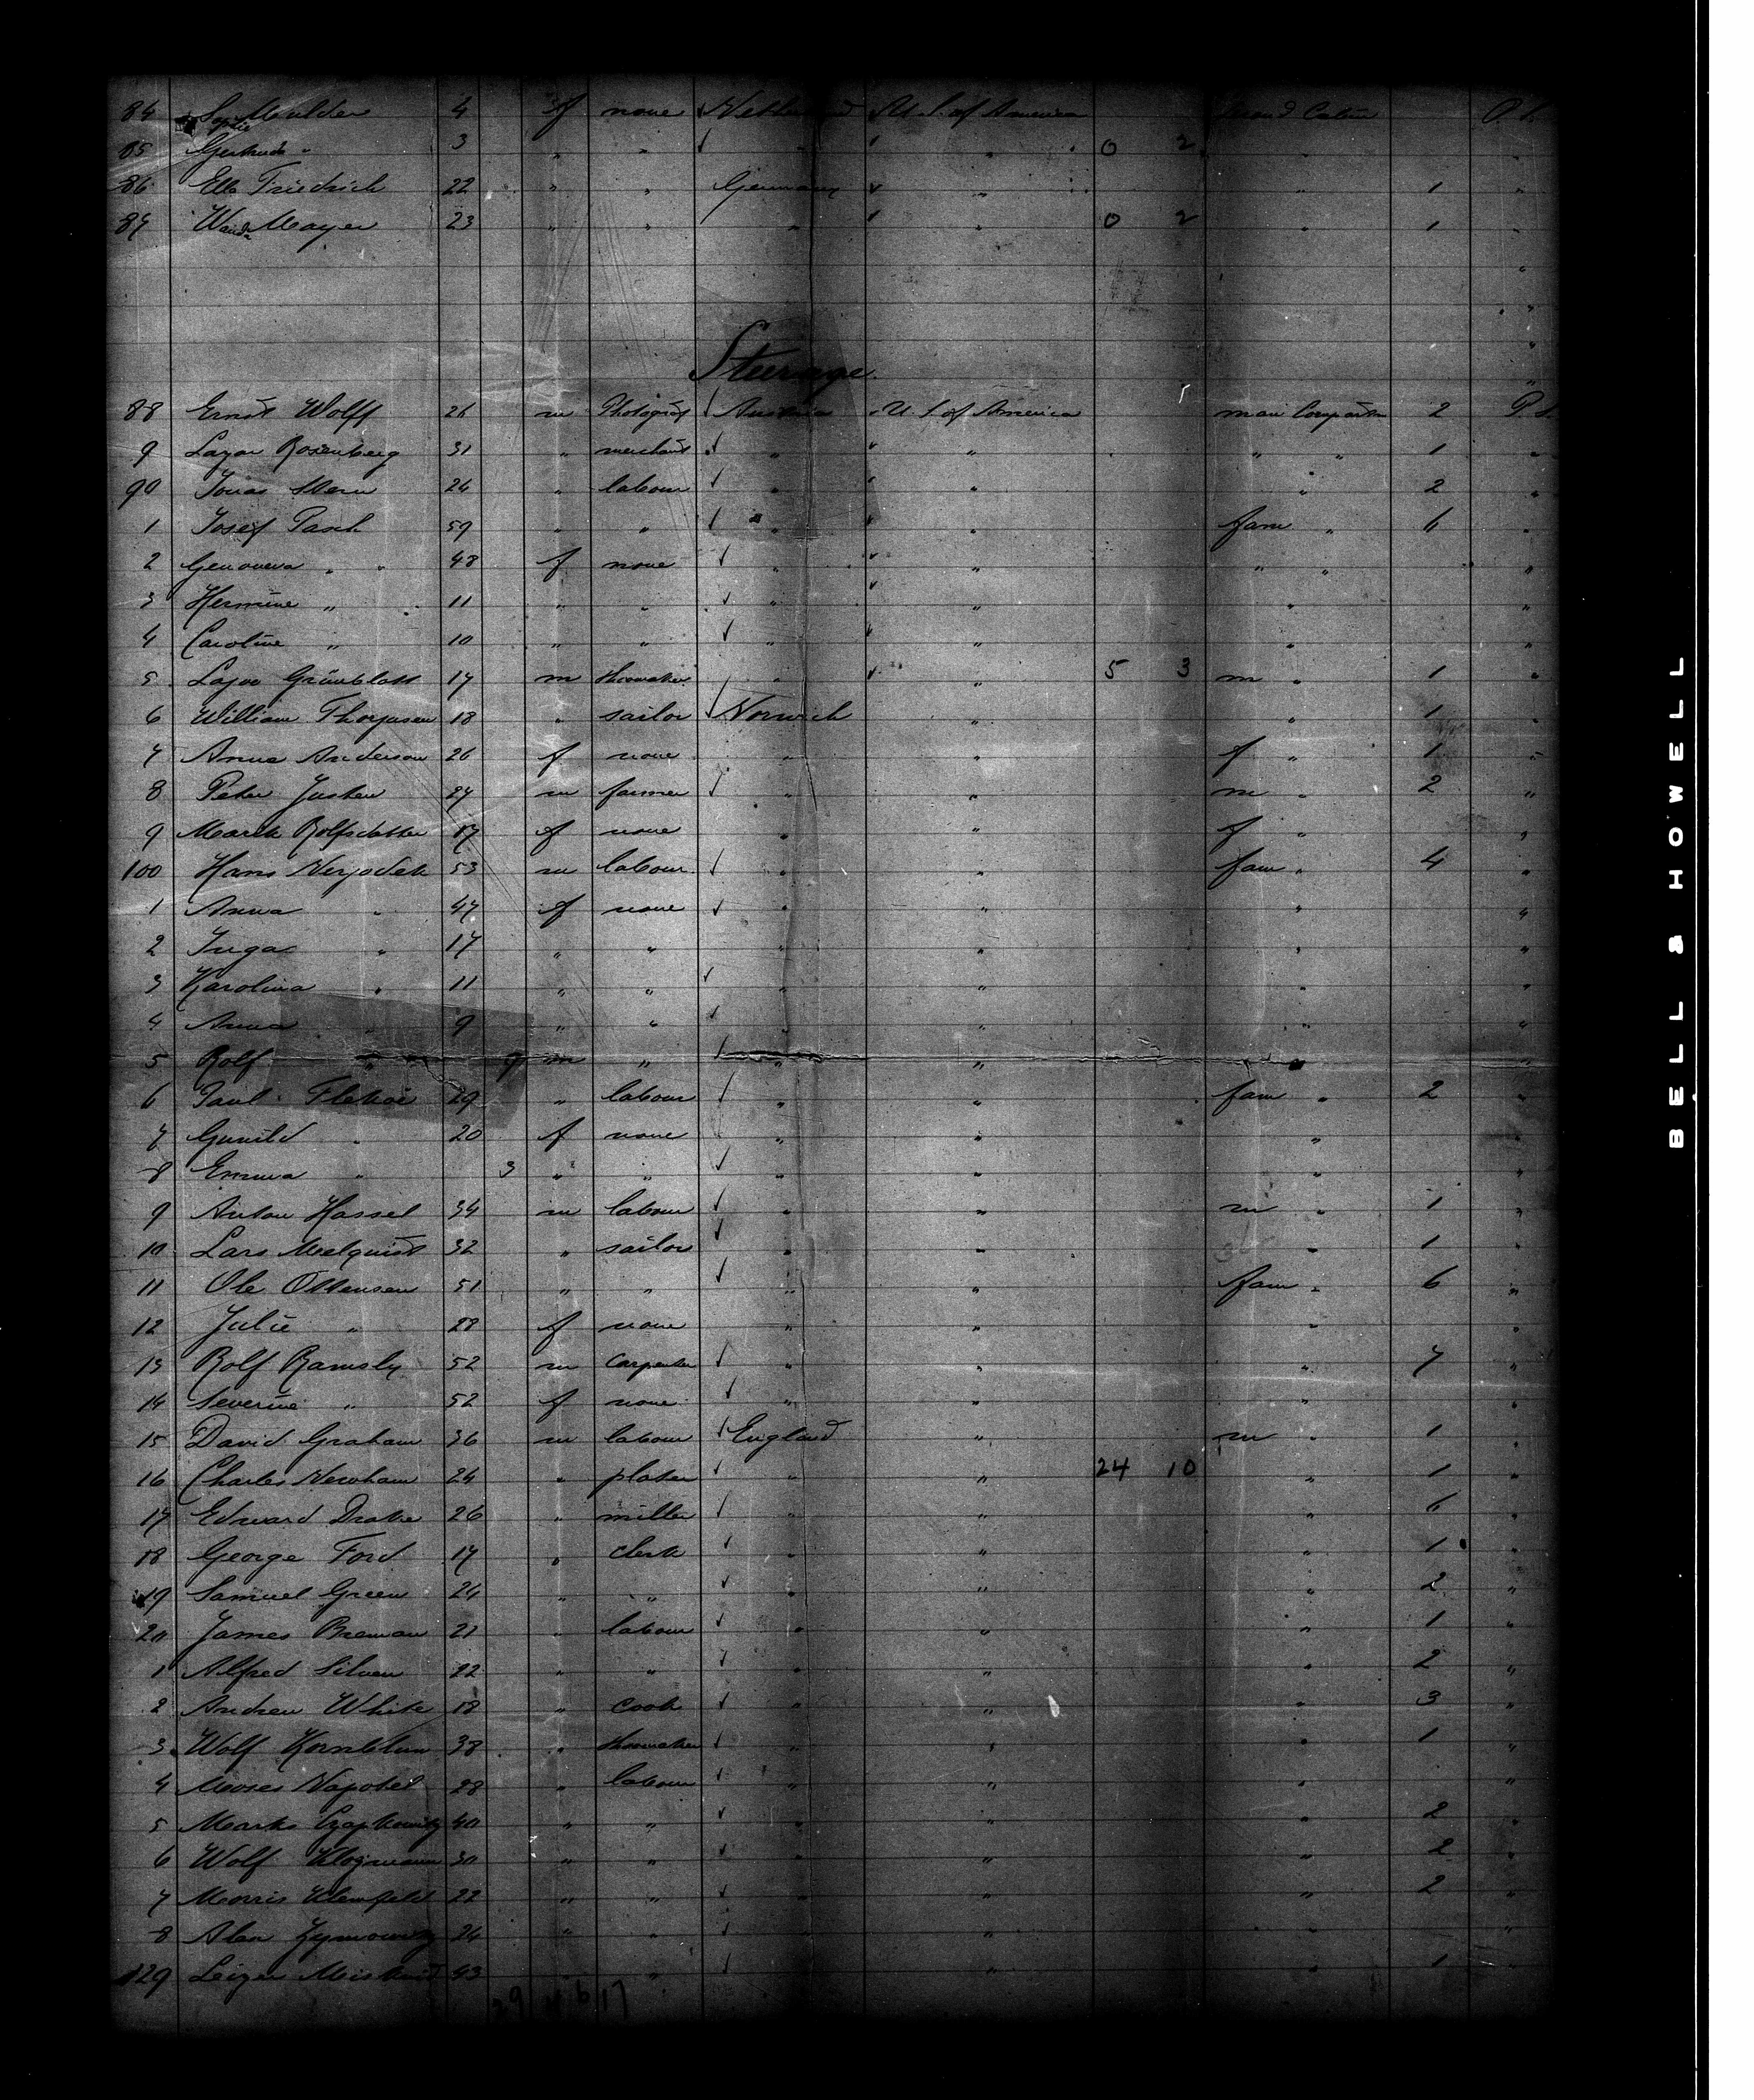 84 Sophie Mulder 4 f none Netherland U. S. of America Second Cabin P. S.
85 Gertrude " 3 " " " " 0 2 " "
86 Ella Friedrich 22 " " Germany " " 1 "
87 Wanda Mayer 23 " " " " 0 2 " 1 "
Steerage.
88 Ernst Wolff 26 m Photograf Austria U. S. of America main 2 P. S.
9 Lazar Rosenberg 31 " merchant " " " " 1 "
90 Jonas Stern 24 " labour " " " 2 "
1 Josef 59 " " " " fam " 6 "
2 Genoveva " " 48 f none " " " " "
3 Hermine " 11 " " " " " "
4 Caroline " 10 " " " " " "
5 Lajos Grünblatt 17 m shoemaker " " 5 3 m " 1 "
6 William 18 " sailor Norwich " " 1 "
7 Anna Anderson 26 f none " " f " 1 "
8 Peter Justen 27 m farmer " " m " 2 "
9 Marit Rolfsdatter 17 f none " " f " "
100 Hans 53 m labour " " fam " 4 "
1 Anna " 47 f none " " " "
2 Inga " 17 " " " " " "
3 Karolina " 11 " " " " " "
4 Anna " 9 " " " " " "
5 Rolf " 9 m " " " " "
6 Paul 29 " labour " " fam " 2 "
7 Gunild " 20 f none " " " "
8 Emma " 3 " " " " " "
9 Anton Hassel 34 m labour " " m " 1 "
10 Lars Melquist 32 " sailor " " " 1 "
11 Ole Ottensen 51 " " " " fam " 6 "
12 Julie " 28 f none " " " "
13 Rolf Ramsly 52 m Carpenter " " " 7 "
14 Severine " 52 f none " " "
15 David Graham 36 m labour England " m " 1 "
16 Charles Newham 24 " plater " " 24 10 " 1 "
17 Edward Drake 26 " miller " " " 6 "
18 George Ford 17 " clerk " " " 1 "
19 Samuel Green 24 " " " " " 2 "
20 James Breman 21 " labour " " " 1 "
1 Alfred Silven 22 " " " " " 2 "
2 Andrew White 18 " cook " " " 3 "
3 Wolf Kornblum 38 " shoemaker " " " 1 "
4 Moses 28 " labour " " " "
5 Marks 40 " " " " " 2 "
6 Wolf 30 " " " " " 2 "
7 Morris 22 " " " " " 2 "
8 24 " " " " "
129 Leizer 43 " " " " " 1 "
BELL & HOWELL